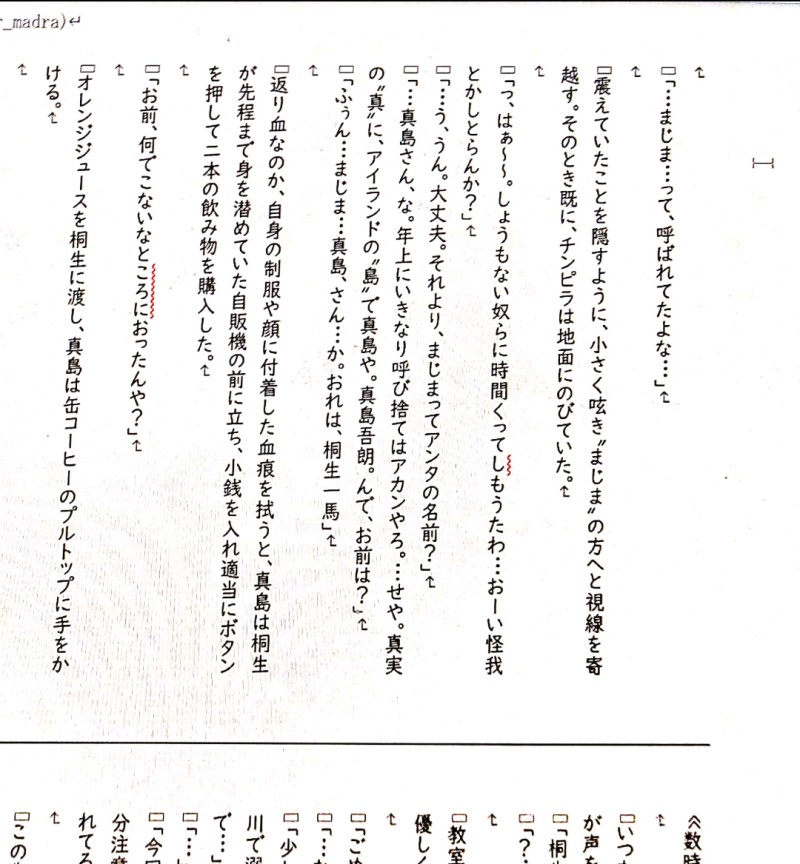 r_madra)
「…まじま…って、呼ばれてたよな…」
震えていたことを隠すように、小さく呟き〝まじま〟の方へと視線を寄
越す。そのとき既に、チンピラは地面にのびていた。
「っ、はぁ～～。しょうもない奴らに時間くってしもうたわ…おーい怪我
とかしとらんか？」
「…う、うん。大丈夫。それより、まじまってアンタの名前？」
「…真島さん、な。年上にいきなり呼び捨てはアカンやろ。…せや。真実
の〝真〟に、アイランドの〝島〟で真島や。真島吾朗。んで、お前は？」
「ふぅん…まじま…真島、さん…か。おれは、桐生一馬」
返り血なのか、自身の制服や顔に付着した血痕を拭うと、真島は桐生
が先程まで身を潜めていた自販機の前に立ち、小銭を入れ適当にボタン
を押して二本の飲み物を購入した。
「お前、何でこないなところにおったんや？」
オレンジジュースを桐生に渡し、真島は缶コーヒーのプルトップに手をか
ける。
≪数時
いつ
が声を
「桐生
「？…
教室
優しく
「ごめ
「…な
「少し
川で溺
で…」
「…
「今日
分注意
れてる
この